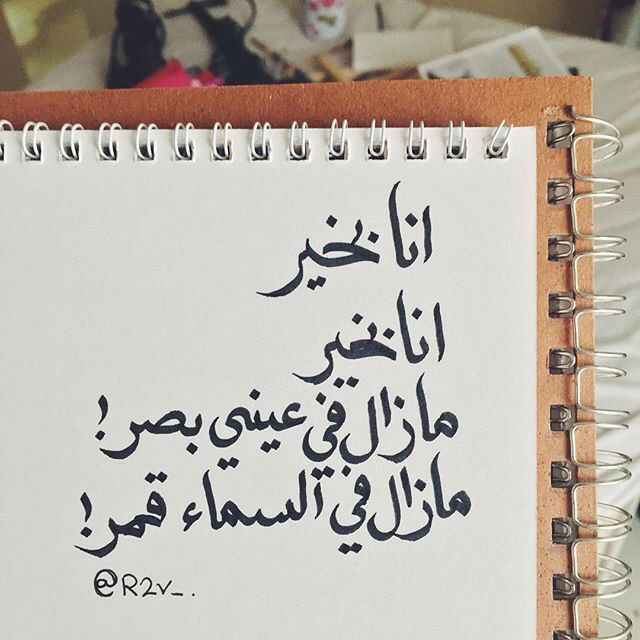 انا بخير
انا بخير
مازال في عيني بصر!
مازال في السماء قمر!
@R2v_.